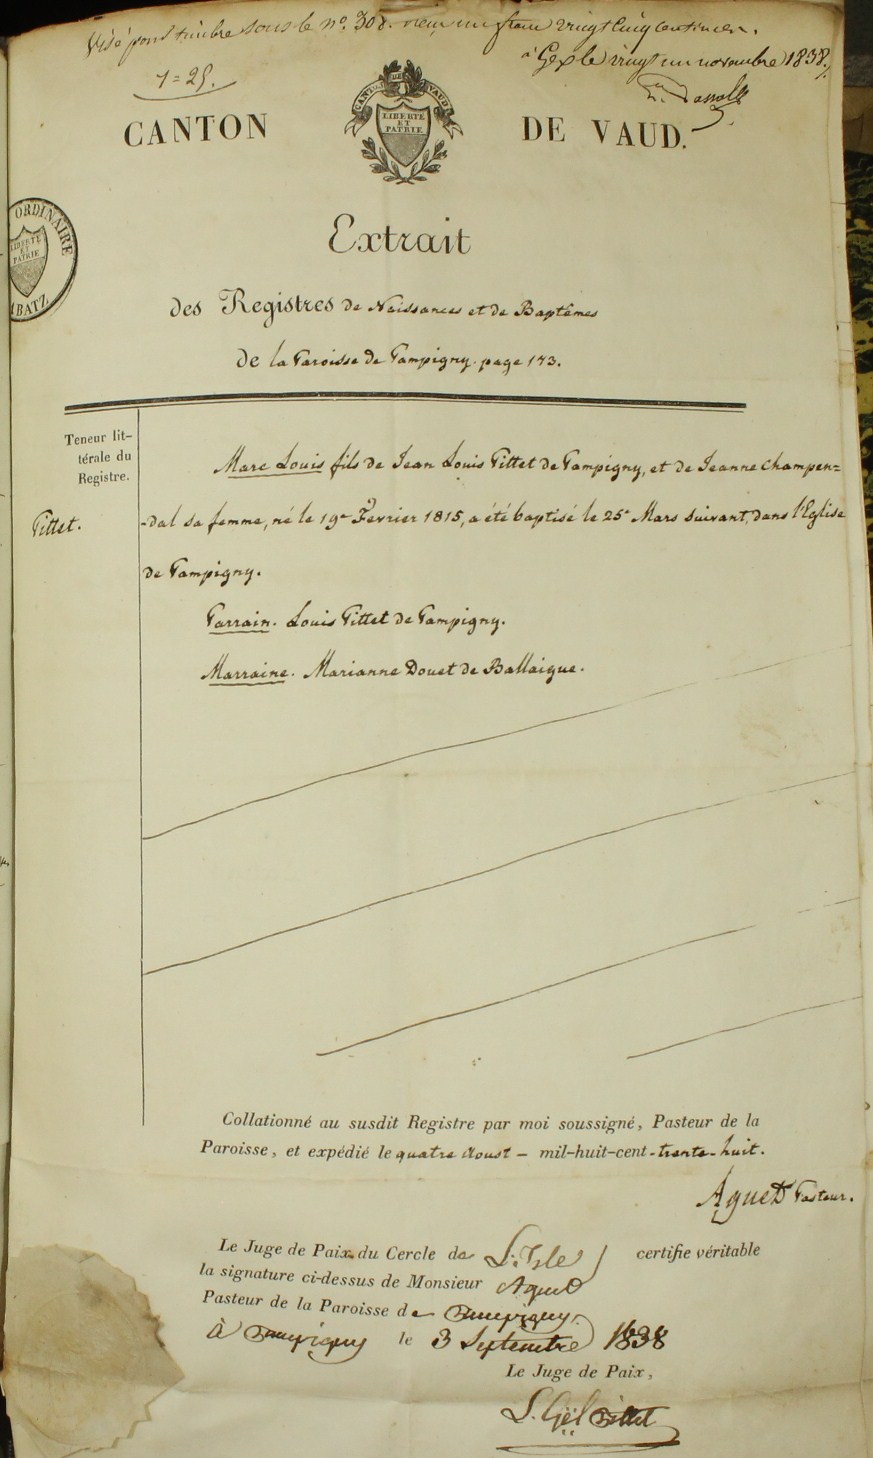 Visé pour timbre sous le nº. 308. reçu un franc vingt cinq centimes.
à Gex le vingt un novembre 1838.
1=25.
CANTON DE VAUD
LIBERTÉ
ET
PATRIE
CANTON DE VAUD.
ORDINAIRE
LIBERTÉ
ET
PATRIE
BATZ
Extrait
des Registres de Naissances et de Baptêmes
de la Paroisse de Pampigny. page 173.
Teneur lit-
térale du
Registre.
Pittet.
Marc Louis fils de Jean Louis Pittet de Pampigny, et de Jeanne Champen=
-dal sa femme, né le 19e Fevrier 1815, a été baptisé le 25e Mars suivant, dans l'Eglise
de Pampigny.
Parrain. Louis Pittet de Pampigny.
Marraine. Marianne Douet de Ballaigue.
Collationné au susdit Registre par moi soussigné, Pasteur de la
Paroisse, et expédié le quatre Aoust – mil-huit-cent-trente-huit.
Aguet Pasteur.
Le Juge de Paix du Cercle de L'Isle certifie véritable
la signature ci-dessus de Monsieur Aguet
Pasteur de la Paroisse de Pampigny.
à Pampigny le 3 Septembre 1838
Le Juge de Paix,